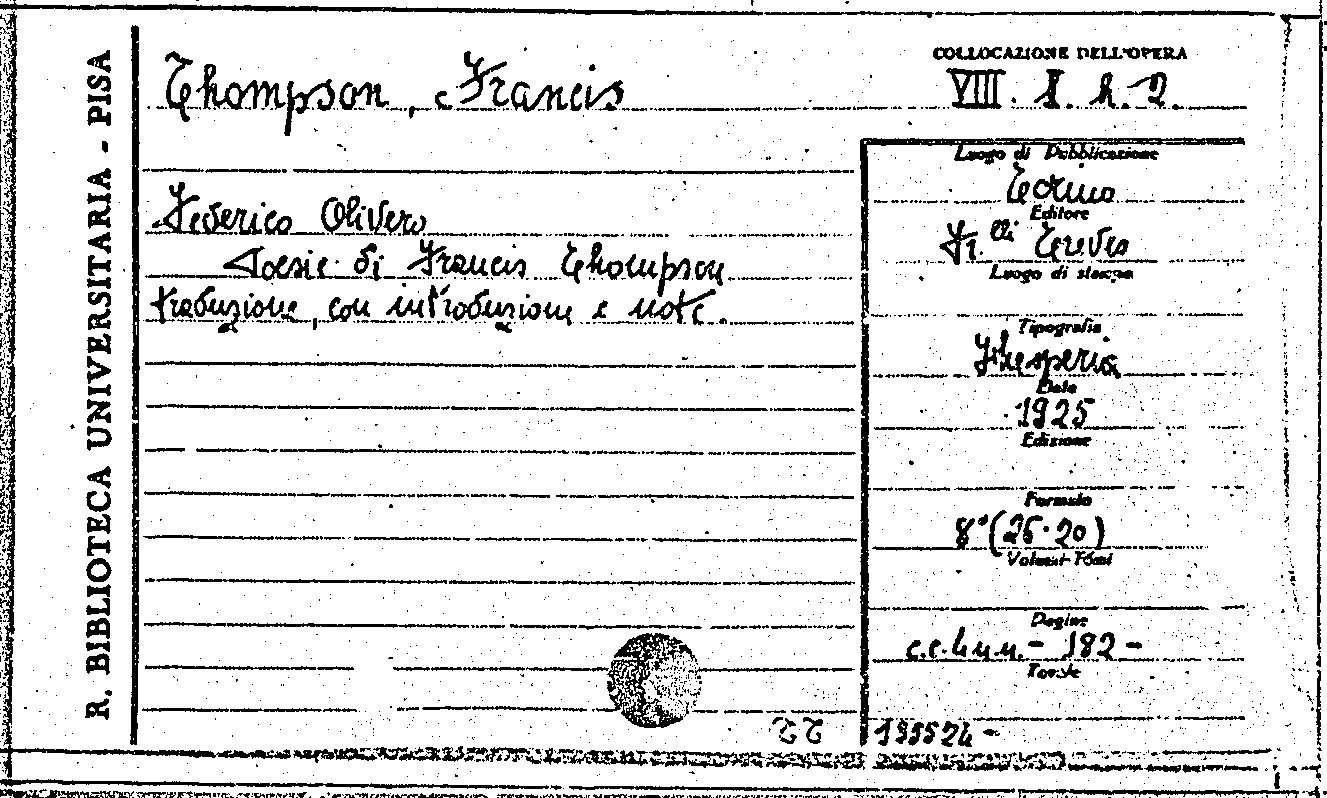 R. BIBLIOTECA UNIVERSITARIA - PISA
Thompson, Francis
COLLOCAZIONE DELL'OPERA
VIII. I. h. 2.
Federico Olivero
Poesie di Francis Thompson
traduzione, con introduzione e note.
Luogo di Pubblicazione
Torino
Editore
Fr.lli Treves
Luogo di stampa
Tipografia
Data
1925
Edizione
Formato
8° (26·20)
Volumi-Tomi
Pagine
c.c. 4 n.n. - 182 -
Tavole